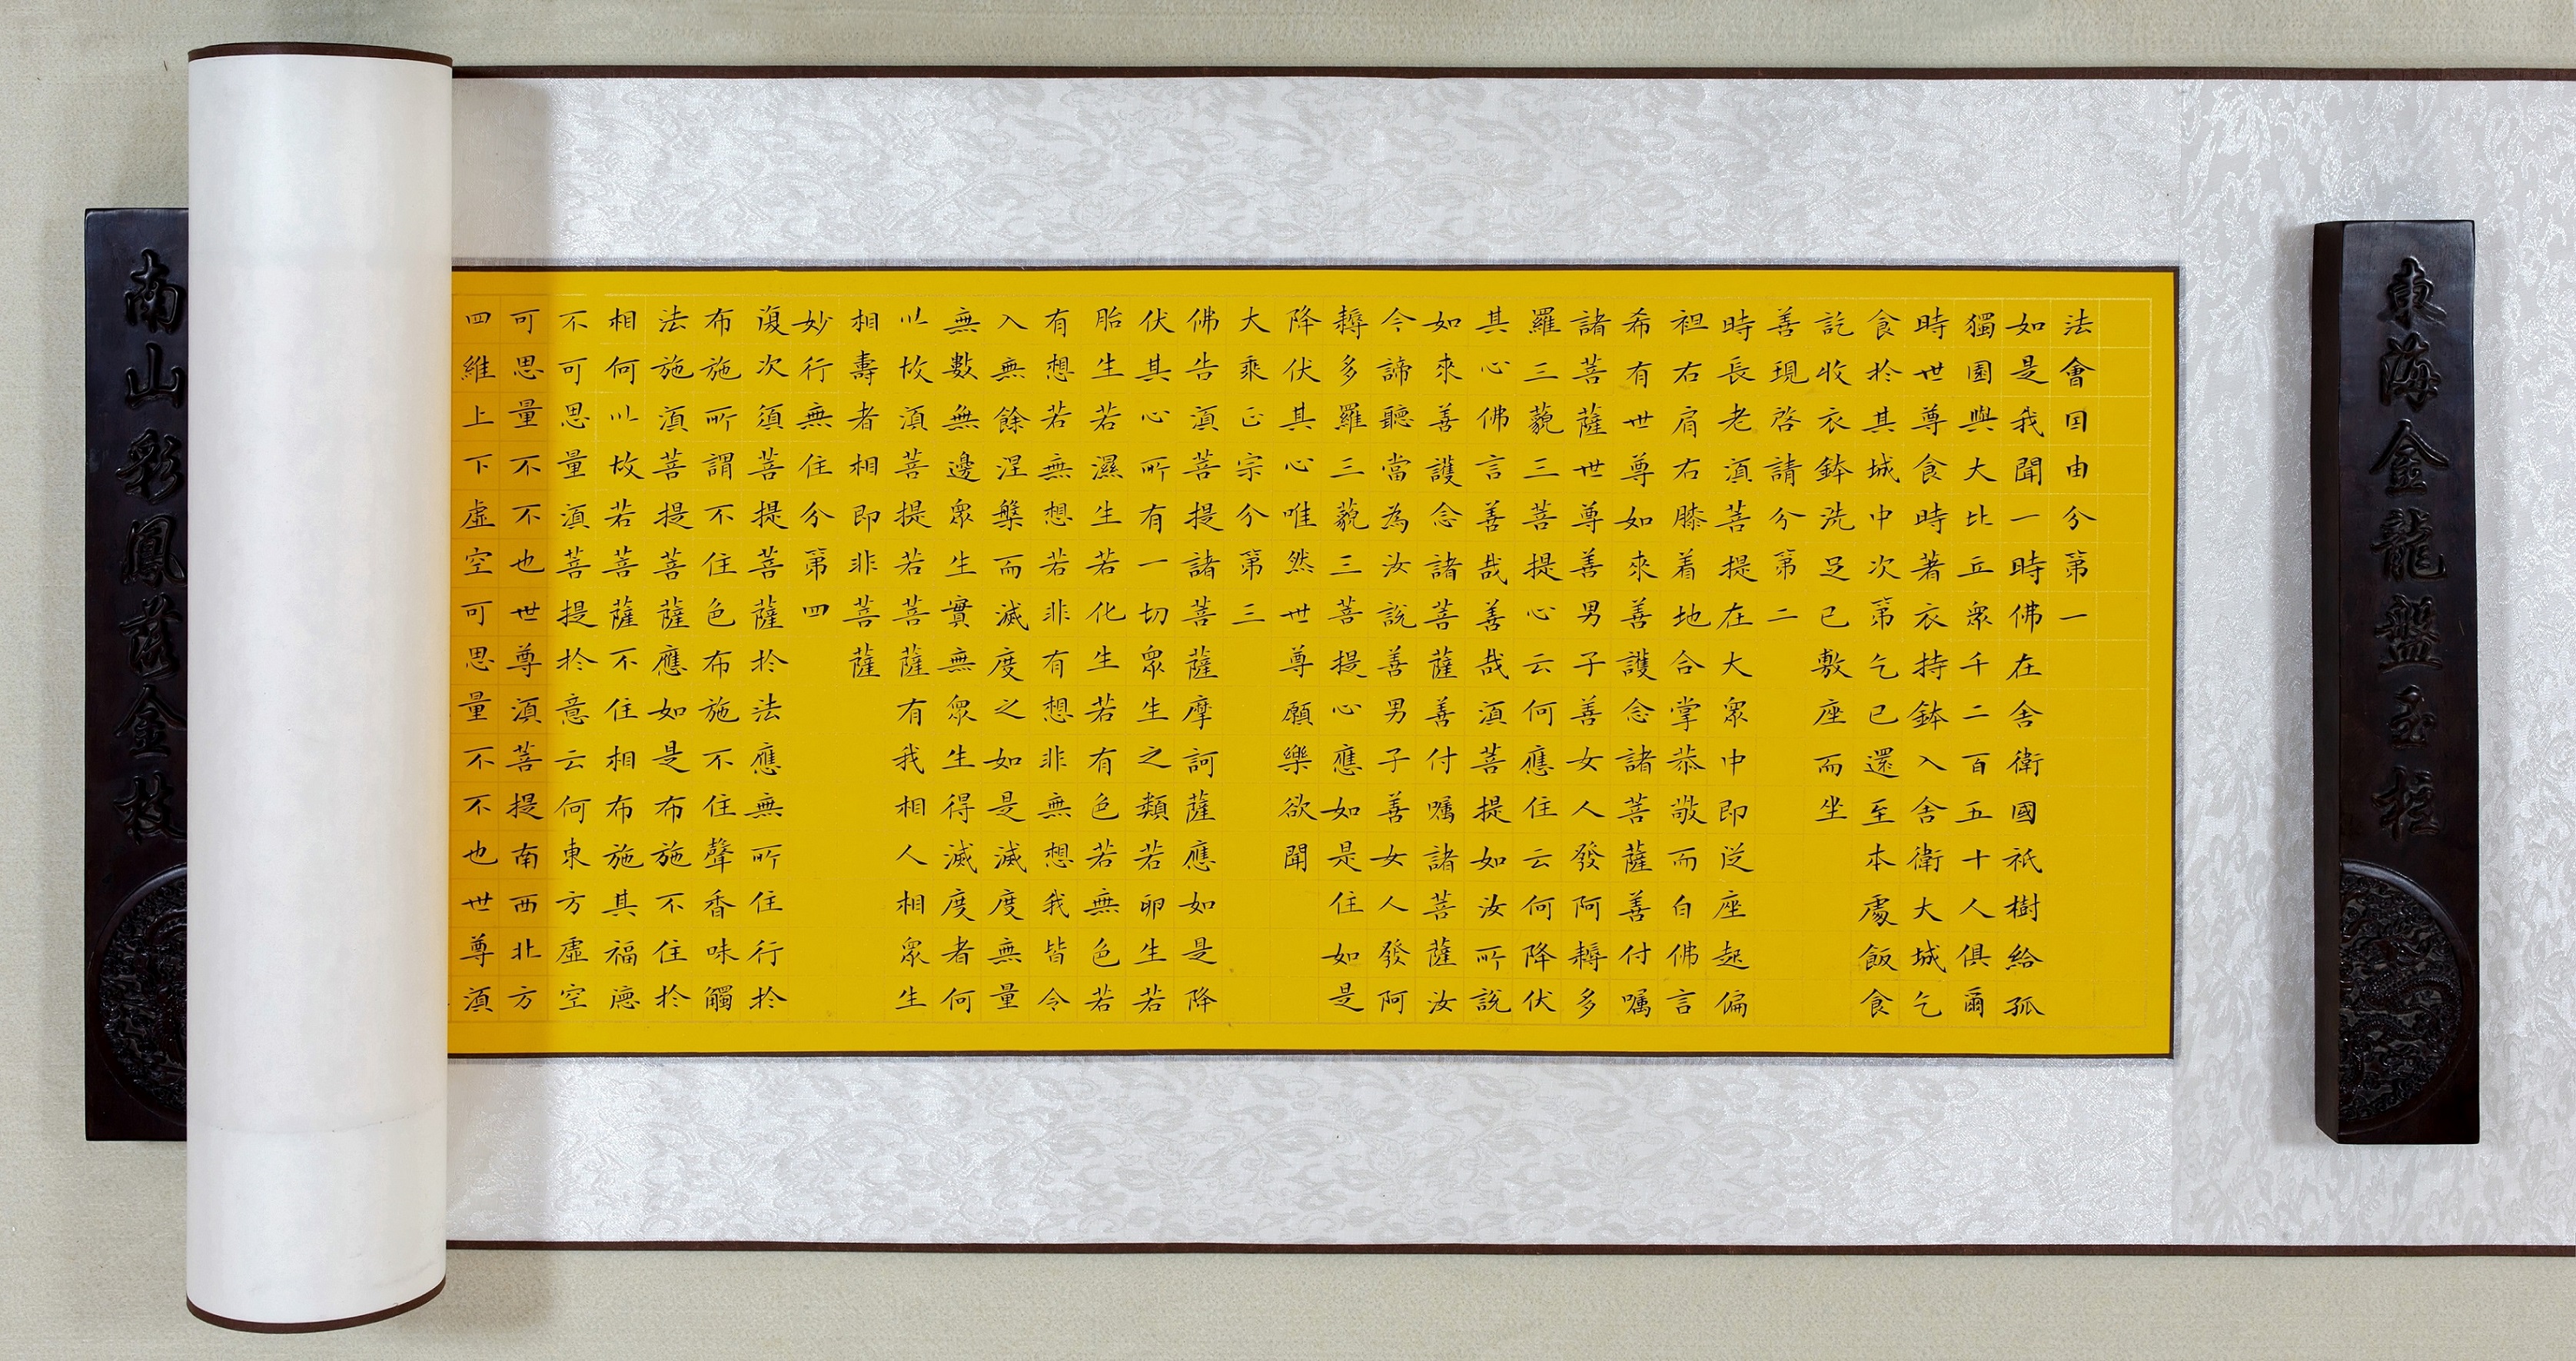 東海金龍盤玉柱
法會囙由分第一
如是我聞一時佛在舍衛國祇樹給孤
獨園與大比丘眾千二百五十人俱爾
時世尊食時著衣持鉢入舍衛大城乞
食於其城中次第乞已還至本處飯食
訖收衣鉢洗足已敷座而坐
善現啓請分第二
時長老須菩提在大眾中即從座起偏
袒右肩右膝着地合掌恭敬而白佛言
希有世尊如來善護念諸菩薩善付囑
諸菩薩世尊善男子善女人發阿耨多
羅三藐三菩提心云何應住云何降伏
其心佛言善哉善哉須菩提如汝所說
如來善護念諸菩薩善付囑諸菩薩汝
今諦聽當為汝說善男子善女人發阿
耨多羅三藐三菩提心應如是住如是
降伏其心唯然世尊願樂欲聞
大乘正宗分第三
佛告須菩提諸菩薩摩訶薩應如是降
伏其心所有一切眾生之類若卵生若
胎生若濕生若化生若有色若無色若
有想若無想若非有想非無想我皆令
入無餘涅槃而滅度之如是滅度無量
無數無邊眾生實無眾生得滅度者何
以故須菩提若菩薩有我相人相眾生
相壽者相即非菩薩
妙行無住分第四
復次須菩提菩薩於法應無所住行於
布施所謂不住色布施不住聲香味觸
法施須菩提菩薩應如是布施不住於
相何以故若菩薩不住相布施其福德
不可思量須菩提於意云何東方虛空
可思量不不也世尊須菩提南西北方
四維上下虛空可思量不不也世尊須
南山彩鳳落金枝